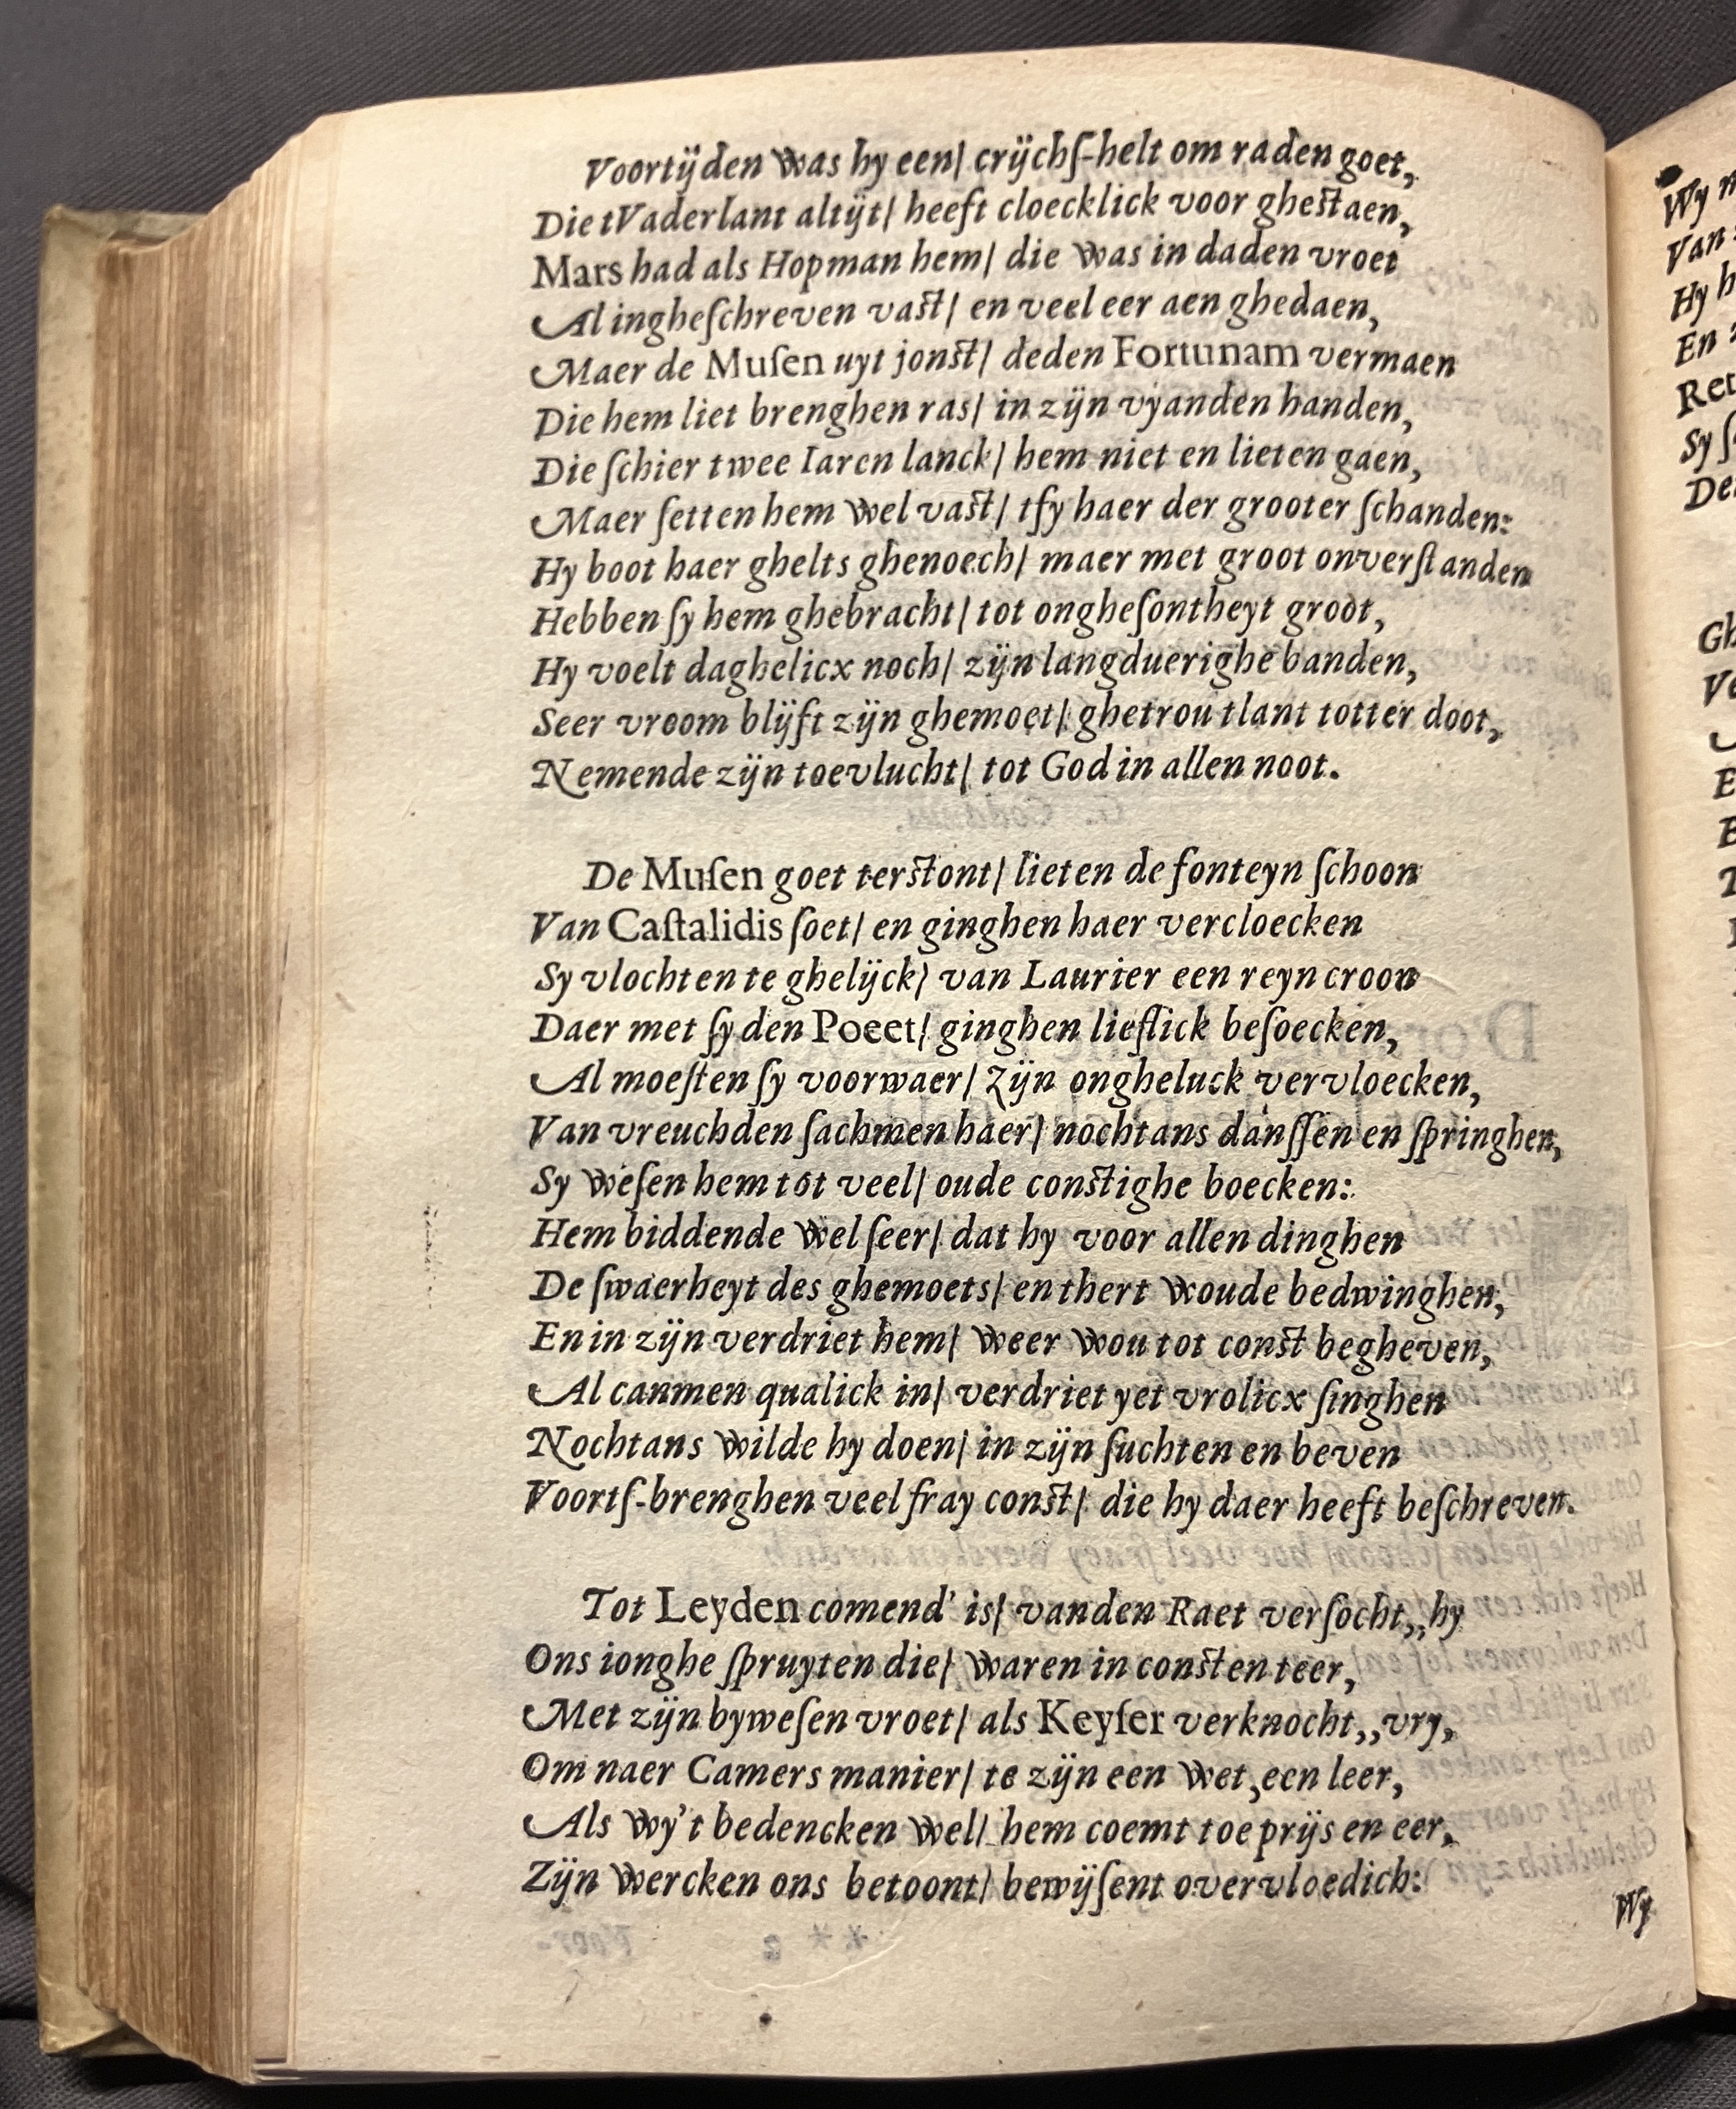 Voortijden was hy een/ crijchſ-helt om raden goet,
Die tVaderlant altijt/ heeft cloecklick voor gheſtaen,
Mars had als Hopman hem/ die was in daden vroet
Al ingheſchreven vaſt/ en veel eer aen ghedaen,
Maer de Muſen uyt jonſt/ deden Fortunam vermaen
Die hem liet brenghen ras/ in zijn vyanden handen,
Die ſchier twee Iaren lanck/ hem niet en lieten gaen,
Maer ſetten hem wel vaſt/ tſy haer der grooter ſchanden:
Hy boot haer ghelts ghenoech/ maer met groot onverſtanden
Hebben ſy hem ghebracht/ tot ongheſontheyt groot,
Hy voelt daghelicx noch/ zijn langduerighe banden,
Seer vroom blijft zijn ghemoet/ ghetrou tlant totter doot,
Nemende zijn toevlucht/ tot God in allen noot.
De Muſen goet terſtont/ lieten de fonteyn ſchoon
Van Caſtalidis ſoet/ en ginghen haer vercloecken
Sy vlochten te ghelijck/ van Laurier een reyn croon
Daer met ſy den Poeet/ ginghen lieflick beſoecken,
Al moeſten ſy voorwaer/ zijn ongheluck vervloecken,
Van vreuchden ſachmen haer/ nochtans danſſen en ſpringhen,
Sy weſen hem tot veel/ oude conſtighe boecken:
Hem biddende wel ſeer/ dat hy voor allen dinghen
De ſwaerheyt des ghemoets/ en thert woude bedwinghen,
En in zijn verdriet hem/ weer wou tot conſt begheven,
Al canmen qualick in/ verdriet yet vrolicx ſinghen
Nochtans wilde hy doen/ in zijn ſuchten en beven
Voortſ-brenghen veel fray conſt/ die hy daer heeft beſchreven.
Tot Leyden comend' is/ vanden Raet verſocht,,hy
Ons ionghe ſpruyten die/ waren in conſten teer,
Met zijn byweſen vroet/ als Keyſer verknocht,,vry,
Om naer Camers manier/ te zijn een wet, een leer,
Als wy't bedencken wel/ hem coemt toe prijs en eer,
Zijn wercken ons betoont/ bewijſent overvloedich:
Wy